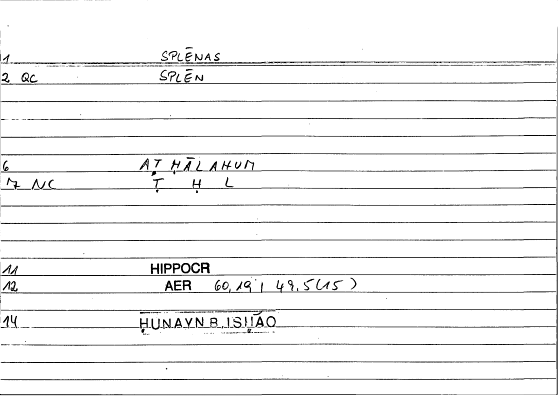 1 SPLĒNAS
2 QC SPLĒN
6 AṬḤĀLAHUM
7 NC Ṭ Ḥ L
11 HIPPOCR
12 AER 60,19; 49,5(15)
14 ḤUNAYN B. ISḤĀQ